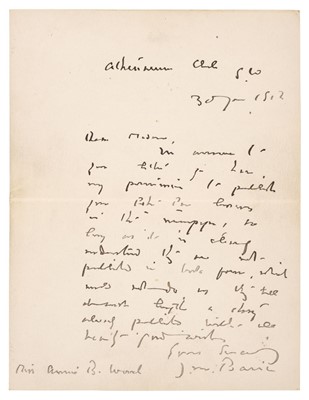 Athenaeum Club S.W
30 Jan 1912
Dear Madam,
In answer to
your letter you have
my permission to publish
your Peter Pan
in the newspaper, so
long as it is clearly
understood they are not
published in book form, which
as they tell
at length a story
already published. With all
good wishes
Yours Sincerely
J. M. Barrie
Miss Annie B. Woard